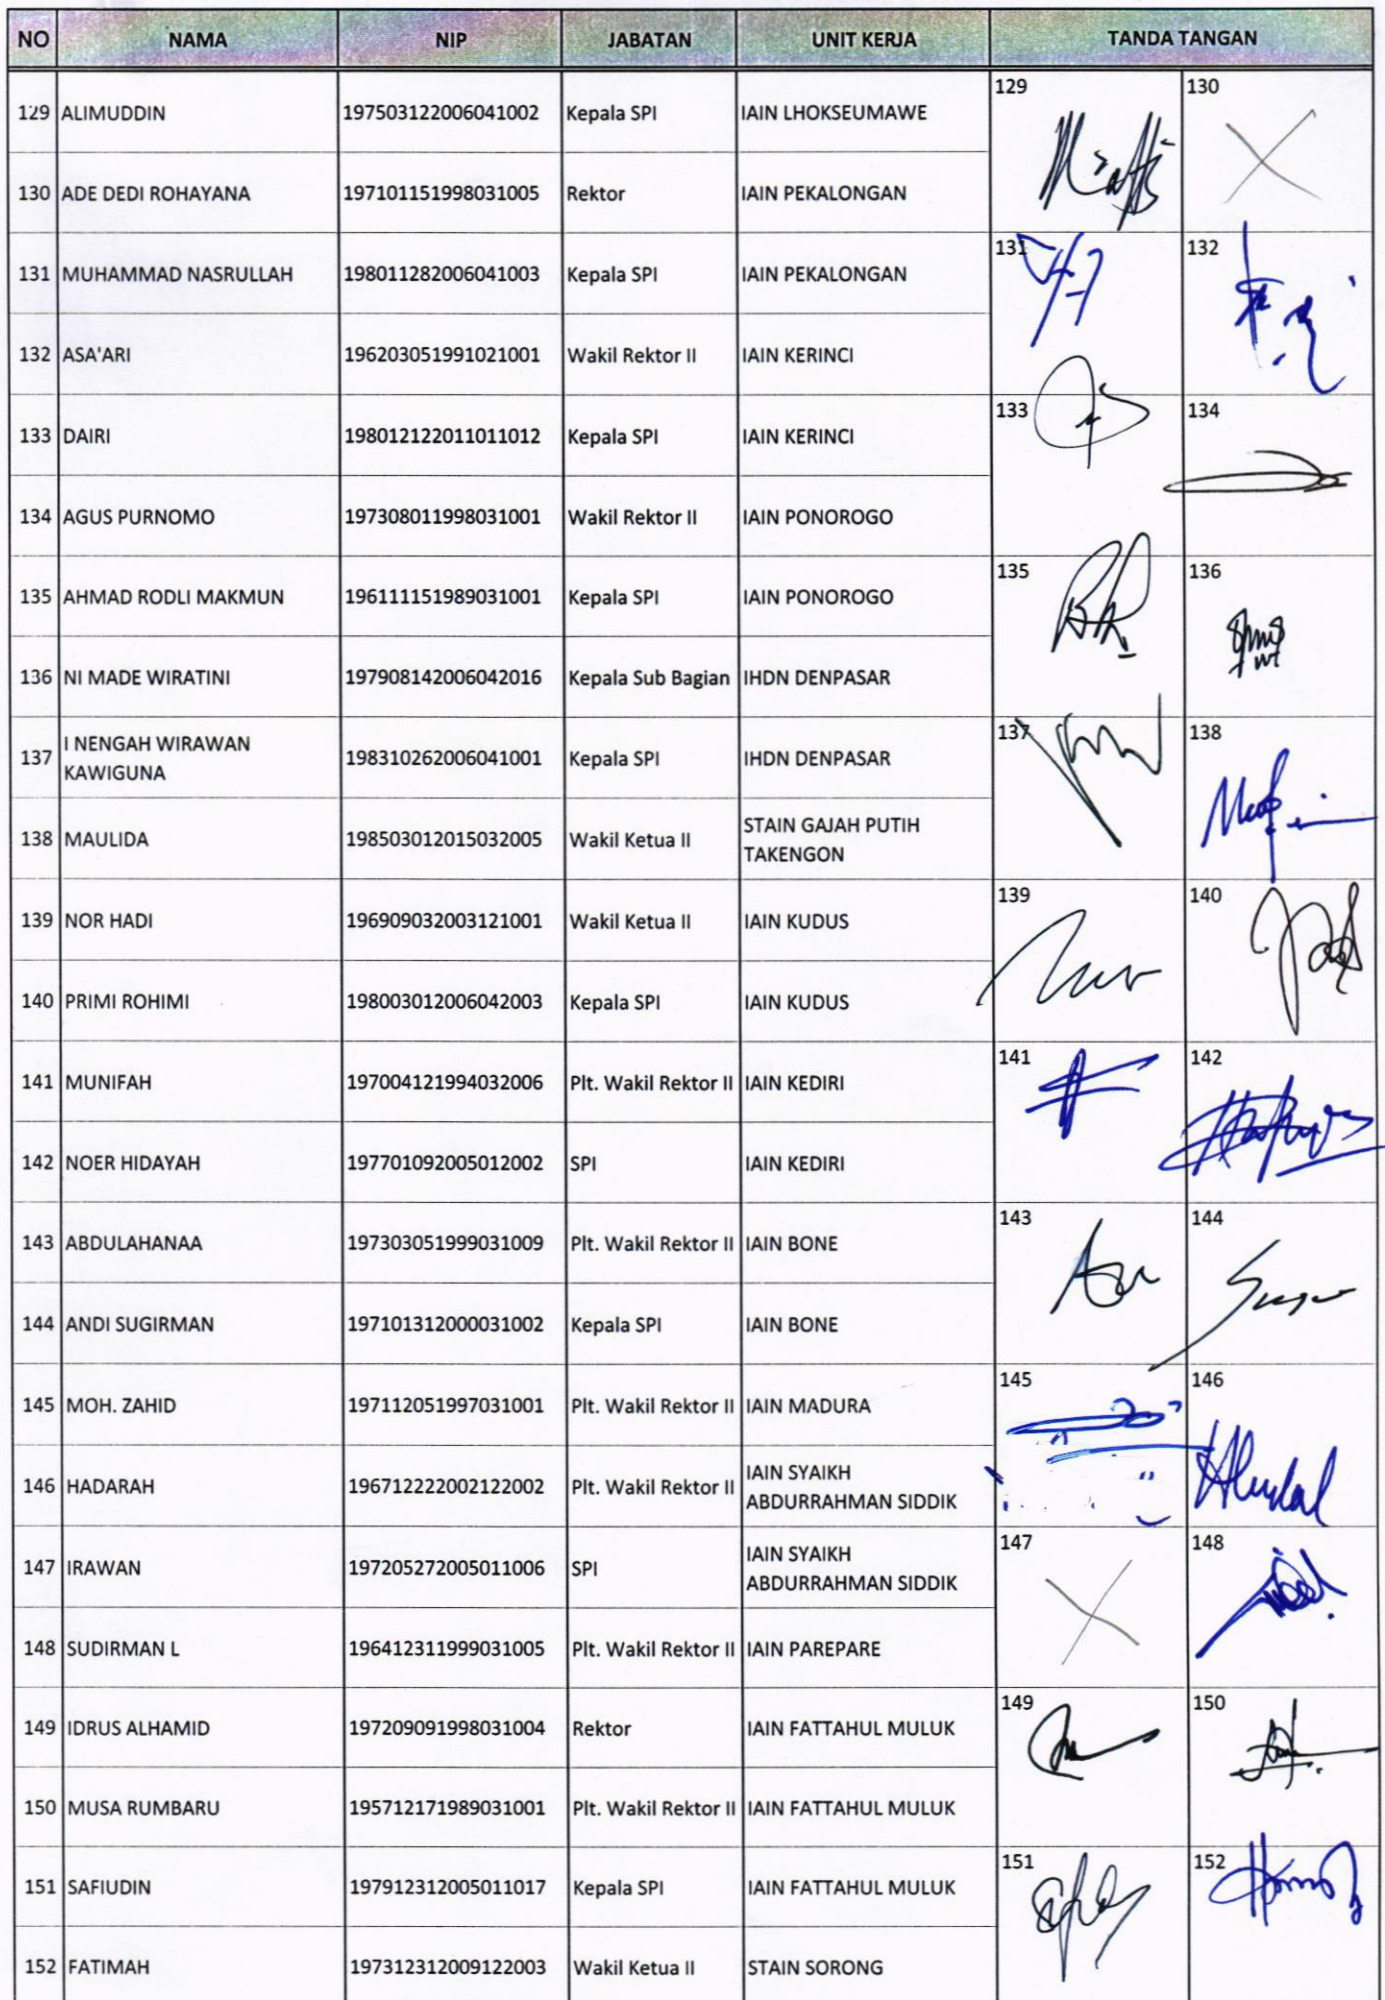 NO NAMA NIP JABATAN UNIT KERJA TANDA TANGAN
129 ALIMUDDIN 197503122006041002 Kepala SPI IAIN LHOKSEUMAWE 129 130
130 ADE DEDI ROHAYANA 197101151998031005 Rektor IAIN PEKALONGAN
131 MUHAMMAD NASRULLAH 198011282006041003 Kepala SPI IAIN PEKALONGAN 131 132
132 ASA'ARI 196203051991021001 Wakil Rektor II IAIN KERINCI
133 DAIRI 198012122011011012 Kepala SPI IAIN KERINCI 133 134
134 AGUS PURNOMO 197308011998031001 Wakil Rektor II IAIN PONOROGO
135 AHMAD RODLI MAKMUN 196111151989031001 Kepala SPI IAIN PONOROGO 135 136
136 NI MADE WIRATINI 197908142006042016 Kepala Sub Bagian IHDN DENPASAR
137 I NENGAH WIRAWAN
KAWIGUNA 198310262006041001 Kepala SPI IHDN DENPASAR 137 138
138 MAULIDA 198503012015032005 Wakil Ketua II STAIN GAJAH PUTIH
TAKENGON
139 NOR HADI 196909032003121001 Wakil Ketua II IAIN KUDUS 139 140
140 PRIMI ROHIMI 198003012006042003 Kepala SPI IAIN KUDUS
141 MUNIFAH 197004121994032006 Plt. Wakil Rektor II IAIN KEDIRI 141 142
142 NOER HIDAYAH 197701092005012002 SPI IAIN KEDIRI
143 ABDULAHANAA 197303051999031009 Plt. Wakil Rektor II IAIN BONE 143 144
144 ANDI SUGIRMAN 197101312000031002 Kepala SPI IAIN BONE
145 MOH. ZAHID 197112051997031001 Plt. Wakil Rektor II IAIN MADURA 145 146
146 HADARAH 196712222002122002 Plt. Wakil Rektor II IAIN SYAIKH
ABDURRAHMAN SIDDIK
147 IRAWAN 197205272005011006 SPI IAIN SYAIKH
ABDURRAHMAN SIDDIK 147 148
148 SUDIRMAN L 196412311999031005 Plt. Wakil Rektor II IAIN PAREPARE
149 IDRUS ALHAMID 197209091998031004 Rektor IAIN FATTAHUL MULUK 149 150
150 MUSA RUMBARU 195712171989031001 Plt. Wakil Rektor II IAIN FATTAHUL MULUK
151 SAFIUDIN 197912312005011017 Kepala SPI IAIN FATTAHUL MULUK 151 152
152 FATIMAH 197312312009122003 Wakil Ketua II STAIN SORONG